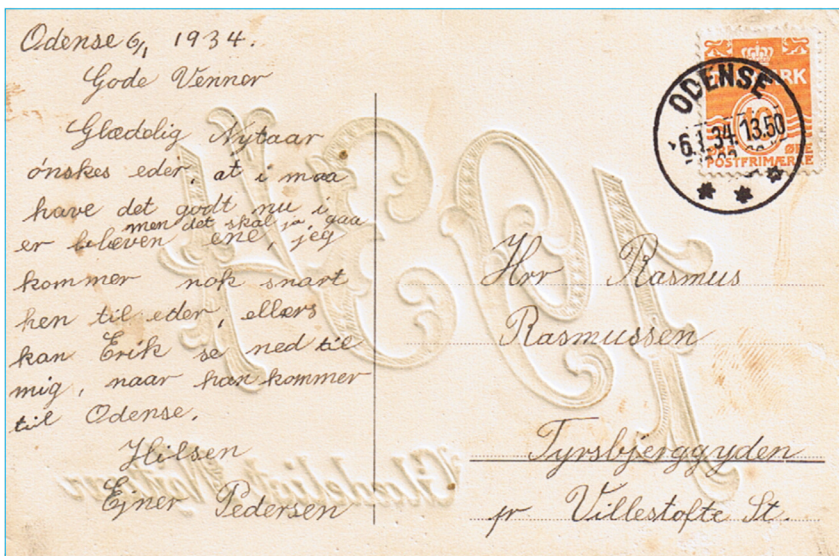 Odense 6/1 1934.
Gode Venner
Glædelig Nytaar
ønskes eder, at i maa
have det godt nu i
men det skal jo gaa
er bleven ene, jeg
kommer nok snart
hen til eder, ellers
kan Erik se ned til
mig, naar han kommer
til Odense.
Hilsen
Ejner Pedersen
ODENSE
6.1.34. 13.50
10
ØRE
POSTFRIMÆRKE
Hrr Rasmus
Rasmussen
Tyrsbjerggyden
pr Villestofte St.
1934
Glædeligt Nytaar